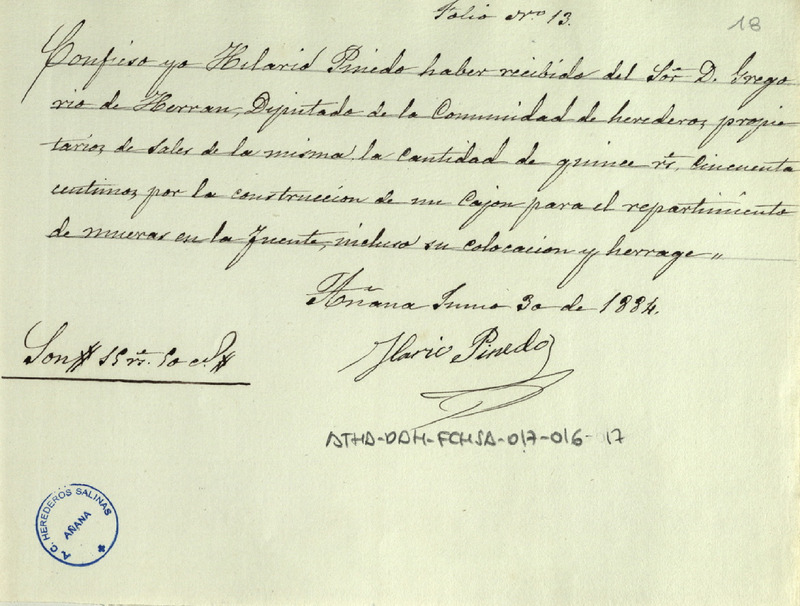 Folio Nro 13.
18
Confieso yo Hilario Pinedo haber recibido del Sor. D. Grego
rio de Herran, Diputado de la Comunidad de herederos propie
tarios de Sales de la misma la cantidad de quince rs. cincuenta
centimos por la construccion de un Cajon para el repartimiento
de mueras en la Fuente, incluso su colocacion y herrage "
Añana Junio 30 de 1884.
Son 15 rs. 50 c.
Ilario Pinedo
ATHA-DAH-FCHSA-017-016-17
A.C. HEREDEROS SALINAS
AÑANA